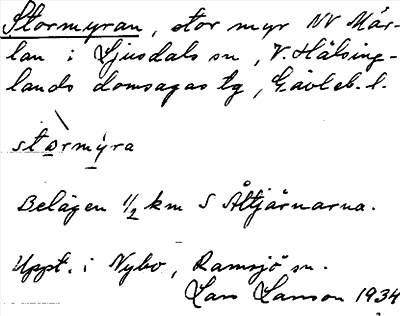 Stormyran, stor myr NV Mår-
lan i Ljusdals sn, V. Hälsing-
lands domsagas tg, Gävleb. l.
stòrmýra
Belägen 1/2 km S Åltjärnarna.
Uppt. i Nybo, Ramsjö sn.
Lars Larsson 1934